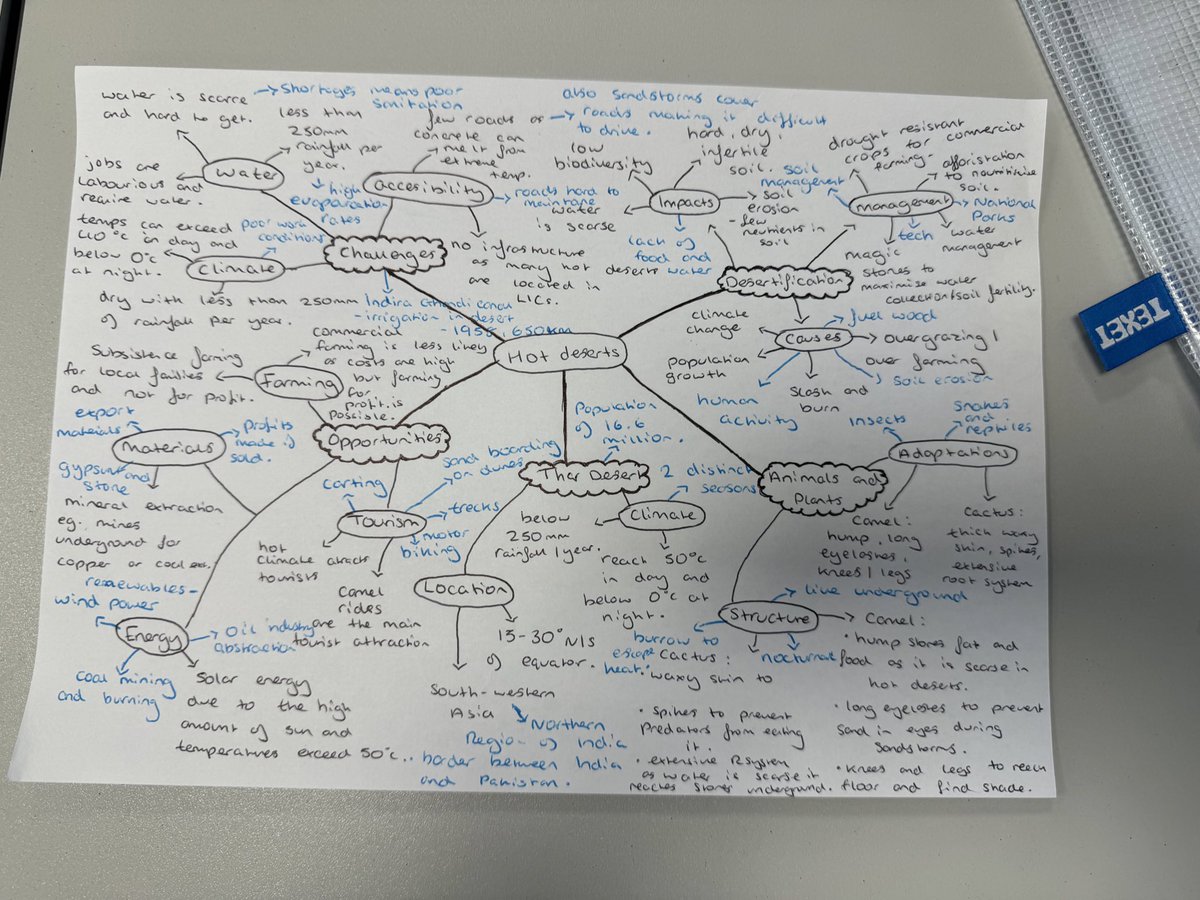 water is scarce
and hard to get.
→ Shortages means poor
sanitation
less than
250mm
rainfall per
year.
↓ high
evaporation
rates
jobs are
labourious and
require water.
Water
few roads as
concrete can
melt from
extreme
temp.
also sandstorms cover
→ roads making it difficult
to drive.
Accesibility
→ roads hard to
maintane
no infrastructure
as many hot deserts
are located in
LICs.
temps can exceed
40°c in day and
below 0°c
at night.
poor work
conditions
Climate
dry with less than 250mm
of rainfall per year.
Challenges
Indira Ghandi canal
- irrigation in desert
- 1958, 650km
Hot deserts
low
biodiversity
hard, dry,
infertile
soil.
Impacts
→ soil
erosion
- few
neutrients in
soil
water
is scarse
lack of
food and
water
soil
management
drought resistant
crops for commercial
farming.
afforistation
to nourish
soil.
management
→ National
Parks
tech
water
management
magic
stones to
maximise water
collection/soil fertility.
Desertification
climate
change
fuel wood
Causes
→ overgrazing /
over farming
population
growth
soil erosion
human
activity
Slash and
burn
Subsistence farming
for local failies
and not for profit.
Farming
commercial
farming is less likely
as costs are high
but farming
for
profit is
possible.
Opportunities
export
materials
Materials
profits
made if
sold.
gypsum and
stone
mineral extraction
eg., mines
underground for
copper or coal
Tourism
sand boarding
on dunes
carting
→ trecks
motor
biking
hot
climate atracts
tourists
Camel
rides
are the main
tourist attraction
renewables -
wind power
Energy
→ Oil industry
abstraction
coal mining
and burning
Solar energy
due to the high
amount of sun and
temperatures exceed 50°c.
Thar Desert
Population
of 16.6
million.
2 distinct
seasons
Climate
below
250mm
rainfall / year.
reach 50°c
in day and
below 0°c at
night.
Location
15-30° N/S
of equator.
South-western
Asia
Northern
Region of India
border between India
and Pakistan.
Animals and
Plants
Insects
snakes
and
reptiles
Adaptations
Camel:
hump, long
eyelashes,
knees / legs
Cactus:
thick waxy
skin, spikes,
extensive
root system
Structure
→ live underground
burrow to
escape
heat.
nocturnal
Cactus:
waxy skin to
• spikes to prevent
predators from eating
it.
• extensive system
as water is scarse it
reaches underground.
→ Camel:
• hump stores fat and
food as it is scarse in
hot deserts.
• long eyeloses to prevent
sand in eyes during
sandstorms.
• knees and legs to reach
floor and find shade.
TEXET